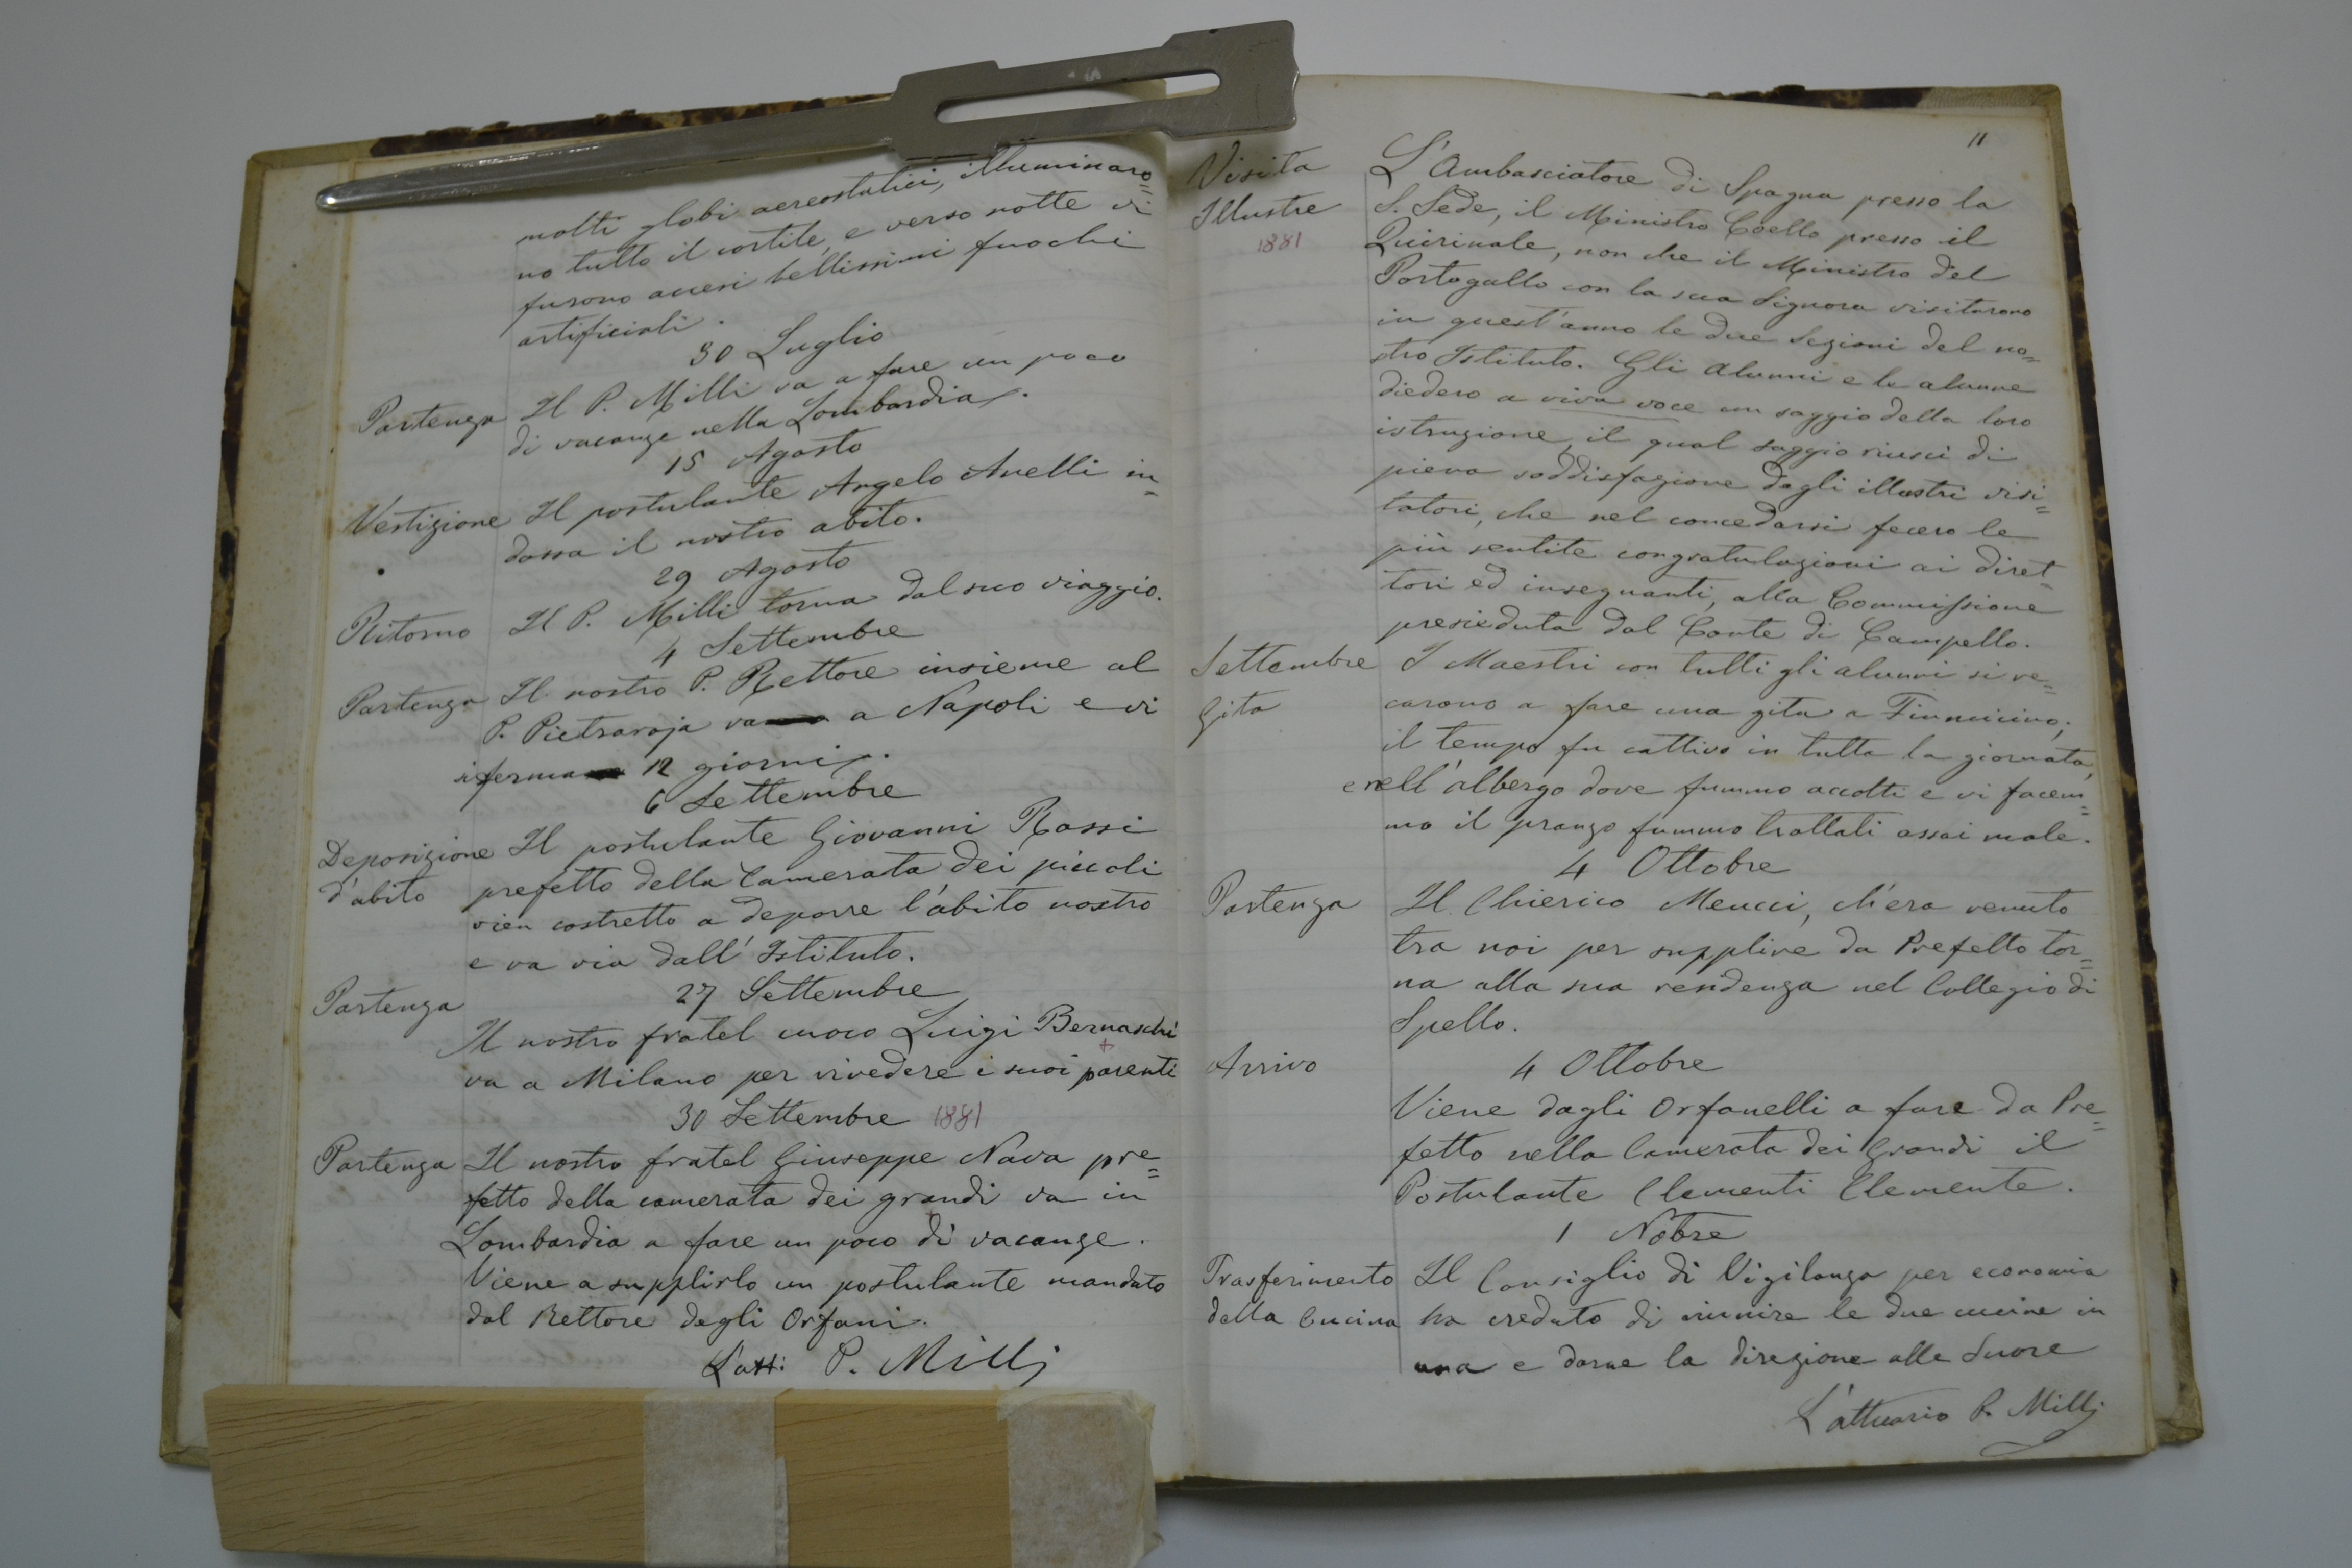 molti globi aereostatici, illuminaro=
no tutto il cortile, e verso notte vi
furono accesi bellissimi fuochi
artificiali.
30 Luglio
Partenza Il P. Milli va a fare un poco
di vacanze nella Lombardia.
15 Agosto
Vestizione Il postulante Angelo Anelli in=
dossa il nostro abito.
29 Agosto
Ritorno Il P. Milli torna dal suo viaggio.
4 Settembre
Partenza Il nostro P. Rettore insieme al
P. Pietraroja va a Napoli e vi
si ferma 12 giorni.
6 Settembre
Deposizione Il postulante Giovanni Rossi
d'abito prefetto della Camerata dei piccoli
vien costretto a deporre l'abito nostro
e va via dall'Istituto.
27 Settembre
Partenza
Il nostro fratel cuoco Luigi Bernaschi
va a Milano per rivedere i suoi parenti
30 Settembre 1881
Partenza Il nostro fratel Giuseppe Nava pre=
fetto della camerata dei grandi va in
Lombardia a fare un poco di vacanze.
Viene a supplirlo un postulante mandato
dal Rettore degli Orfani.
L'att: P. Milli
11
Visita L'Ambasciatore di Spagna presso la
Illustre S. Sede, il Ministro Coello presso il
1881 Quirinale, non che il Ministro del
Portogallo con la sua Signora visitarono
in quest'anno le due Sezioni del no=
stro Istituto. Gli Alunni e le alunne
diedero a viva voce un saggio della loro
istruzione, il qual saggio riuscì di
piena soddisfazione dagli illustri visi=
tatori, che nel concedarsi fecero le
più sentite congratulazioni ai diret=
tori ed insegnanti, alla Commissione
presieduta dal Conte di Campello.
Settembre I Maestri con tutti gli alunni si re=
Gita carono a fare una gita a Fiumicino;
il tempo fu cattivo in tutta la giornata,
e nell'albergo dove fummo accolti e vi facem=
mo il pranzo fummo trattati assai male.
4 Ottobre
Partenza Il Chierico Meucci, ch'era venuto
tra noi per supplire da Prefetto tor=
na alla sua residenza nel Collegio di
Spello.
Arrivo 4 Ottobre
Viene dagli Orfanelli a fare da Pre=
fetto nella Camerata dei Grandi il
Postulante Clementi Clemente.
1 Nobre
Trasferimento Il Consiglio di Vigilanza per economia
della Cucina ha creduto di riunire le due cucine in
una e darne la direzione alle Suore
L'attuario P. Milli